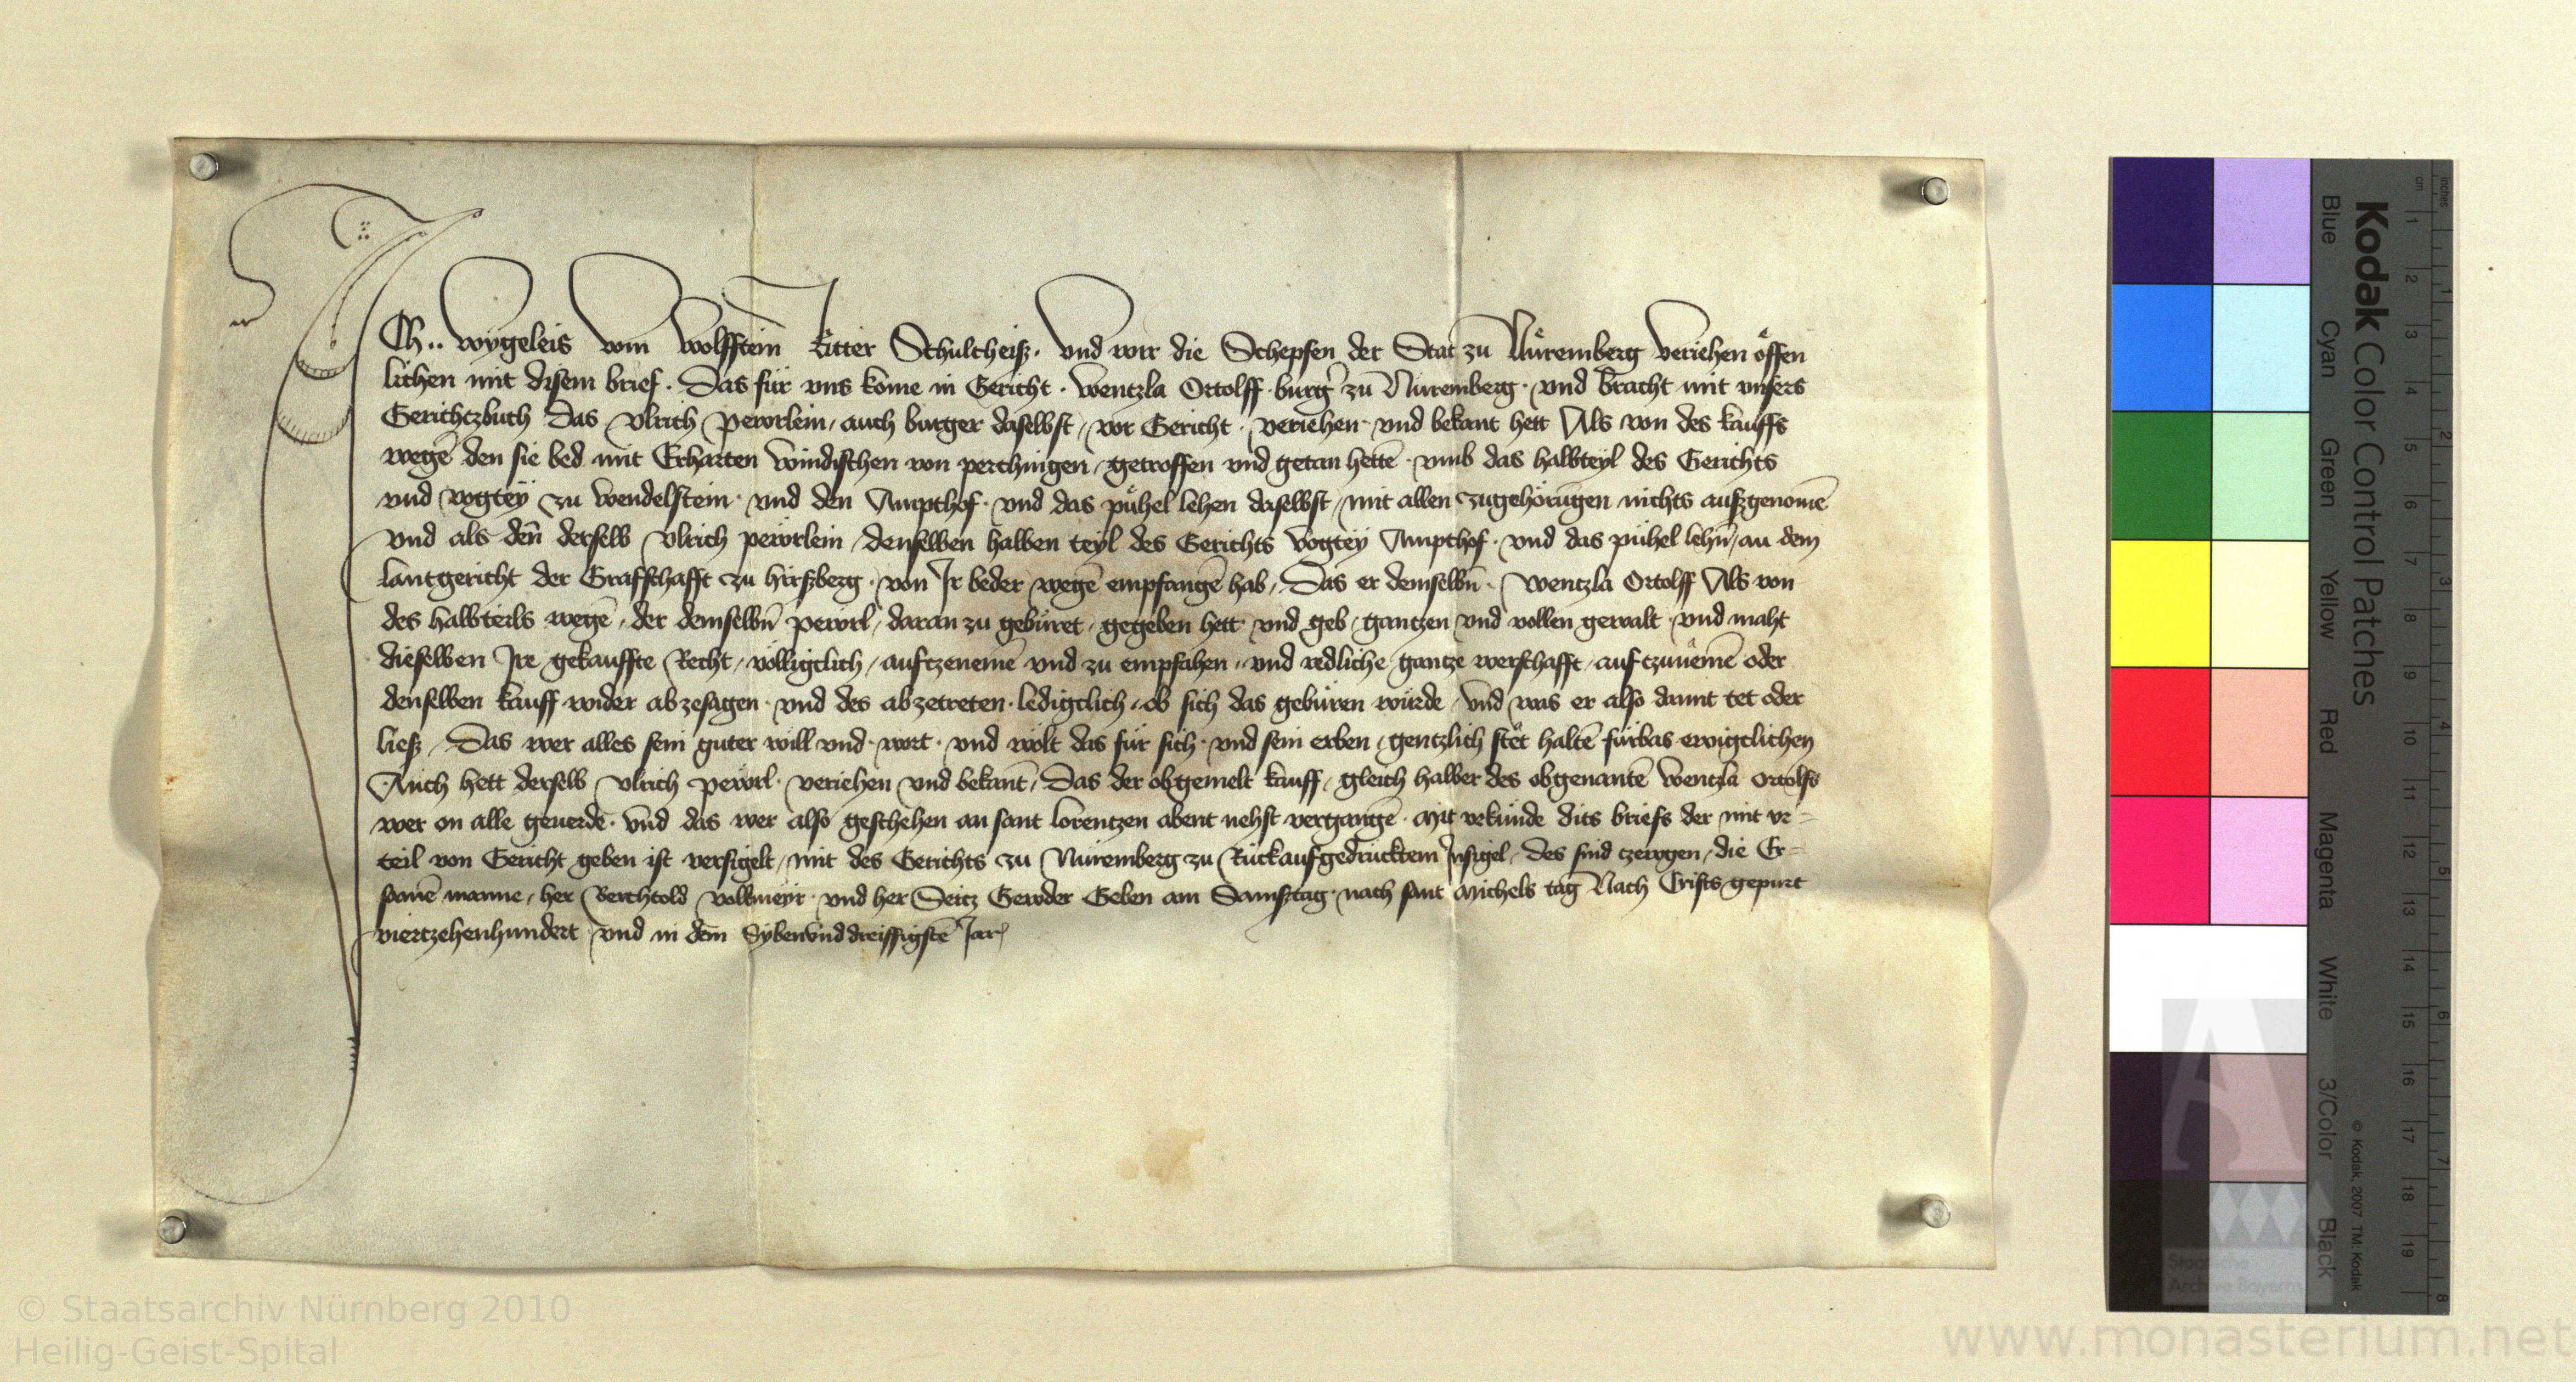 ICh .. wygeleis vom Wolfstein Ritter Schultheiß · und wir die Schepfen der Stat zu Nuͤremberg veriehen oͤffen
lichen mit disem brief · Das für uns kome in Gericht · Wentzla Ortolff · burg̉ zu Nüremberg · und bracht mit unsers
Gerichtzbuch Das Vlrich Peworlein / auch burger daselbst / vor Gericht · veriehen und bekant hett Als von des kauffs
wegē den sie bed mit Erharten Windischen von perchingen / getroffen und getan hettē · vmb das halbteyl des Gerichts
und vogtey zu Wendelstein · und den Ampthof · und das puͤhel lehen daselbst / mit allen zugehörūgen nichts außgenomē
und als deñ derselb Vlrich peworlein / denselben halben teyl des Gerichts Vogtey Ampthof · und das pühel leheñ / an dem
lantgericht der Graffschafft zu hirßberg · von Ir beder wegē empfangē hab / Das er demselbñ · Wentzla Ortolff Als von
des halbteils wegē / der demselbñ peworl / daran zu gebüret / gegeben hett und geb / gantzen und vollen gewalt · und maht
dieselben Ire gekauffte Recht / völligclich / auftzenemē und zu empfahen / und redliche gantze werschafft / auftzunemē oder
denselben kauff wider abzesagen · und des abzetreten · ledigclich / ob sich das gebüren würde / und was er also damit tet oder
ließ / Das wer alles sein guter will und · wort · und wölt das für sich · und sein erben / gentzlich stet haltē fürbas ewigclichen
Auch hett derselb Vlrich peworl · veriehen und bekant / Das der obgemelt kauff / gleich halber des obgenantē Wentzla Ortolfs
wer on alle geuerde · Und das wer also geschehen an sant Lorentzen abent nehst vergangē · Mit vrkunde dits briefs der mit vr=
teil von Gericht geben ist versigelt / mit des Gerichts zu Nüremberg zu Ruckaufgedrucktem Insigel / Des sind tzewgen / die Er=
samē manne / her Berchtold Volkmeyr · und her Seitz Gewder Geben am Samßtag · nach sant Michels tag Nach Crists gepurt
viertzehenhundert und in dem Sybenunddreissigstē Jar
© Staatsarchiv Nürnberg 2010
Heilig-Geist-Spital
www.monasterium.net
Kodak Color Control Patches
© Kodak, 2007 TM: Kodak
Blue Cyan Green Yellow Red Magenta White 3/Color Black
cm 1 2 3 4 5 6 7 8 9 10 11 12 13 14 15 16 17 18 19
inches 1 2 3 4 5 6 7 8
Staatliche
Archive Bayerns